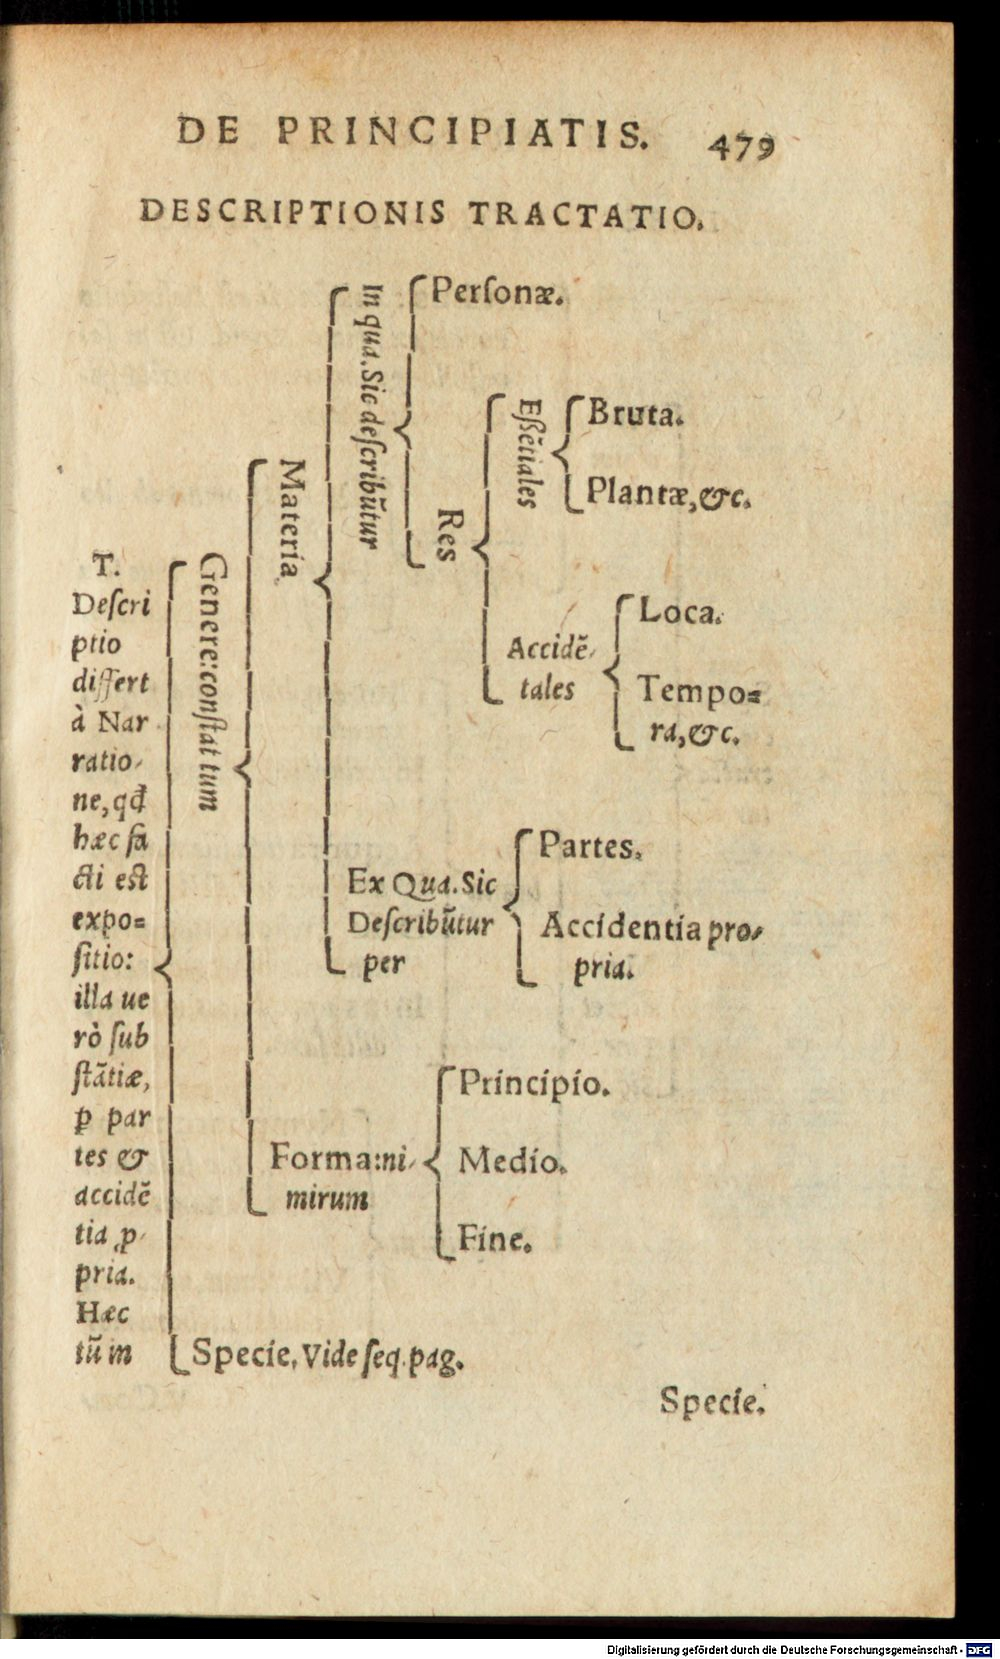 DE PRINCIPIATIS. 479
DESCRIPTIONIS TRACTATIO.
T.
Deſcri
ptio
differt
à Nar
ratio-
ne, qđ
hæc fa
cti est
expo=
ſitio:
illa ue
rò ſub
ſtātiæ,
ꝑ par
tes &
accidē
tia ꝓ-
pria.
Hæc
tū in
Genere: conſtat tum
Materia
In qua. Sic deſcribūtur
Perſonæ.
Res
Eßētiales
Bruta.
Plantæ, &c.
Accidē-
tales
Loca.
Tempo=
ra, &c.
Ex Qua. Sic
Deſcribūtur
per
Partes.
Accidentia pro-
pria.
Forma: ni-
mirum
Principio.
Medio.
Fine.
Specie, Vide ſeq. pag.
Specie.
Digitalisierung gefördert durch die Deutsche Forschungsgemeinschaft - DFG